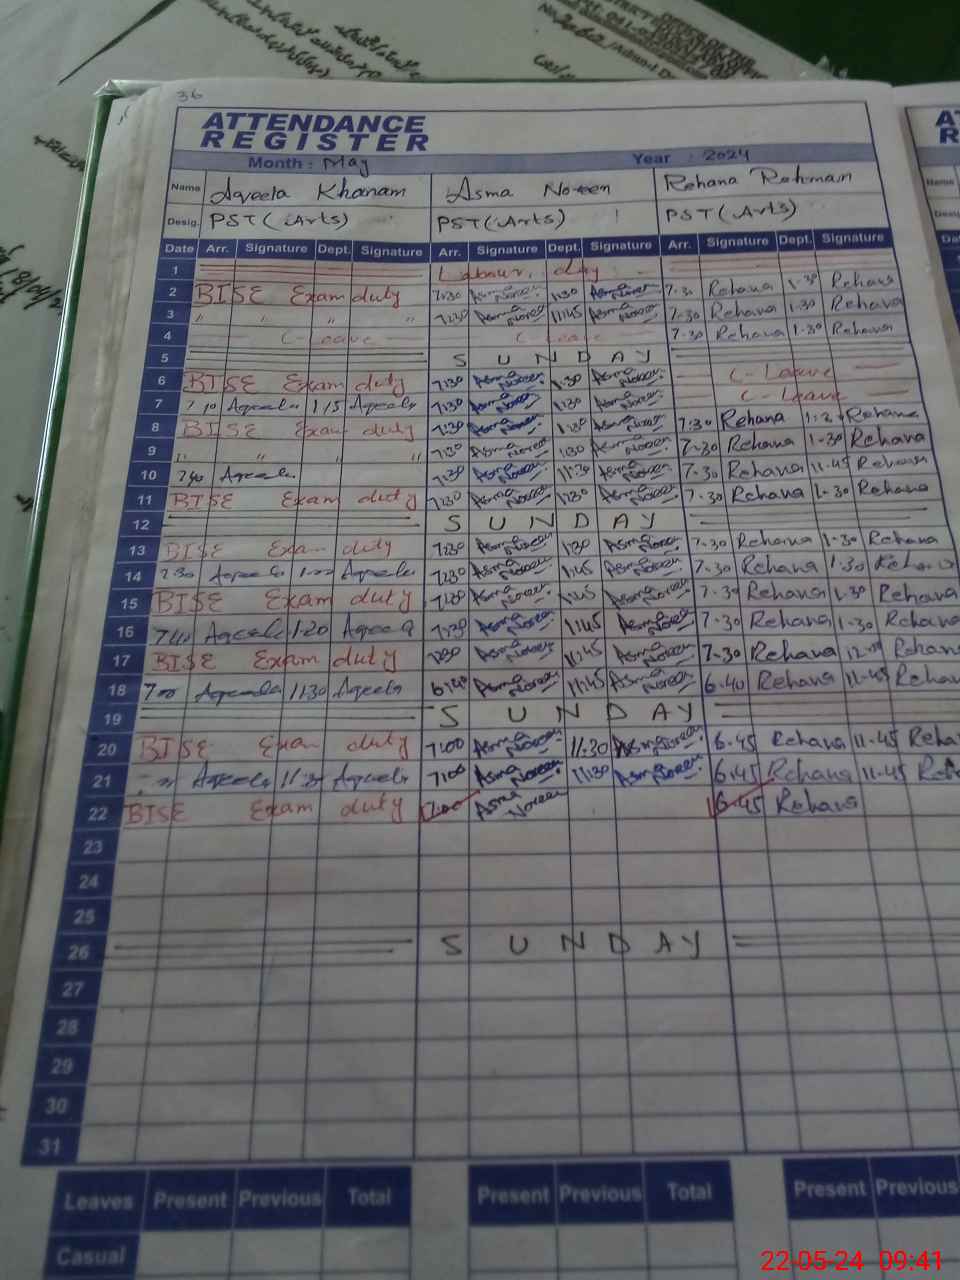 36
ATTENDANCE
REGISTER
Month : May Year : 2024
Name Aqeela Khanam Asma Noreen Rehana Rehman
Desig. PST (Arts) PST (Arts) PST (Arts)
Date Arr. Signature Dept. Signature Arr. Signature Dept. Signature Arr. Signature Dept. Signature
1 Labour day
2 BISE Exam duty 7:30 Asma Noreen 1:30 Asma Noreen 7-30 Rehana 1-30 Rehana
3 " " " " 7:30 Asma Noreen 11:45 Asma Noreen 7-30 Rehana 1.30 Rehana
4 C-Leave C-Leave 7-30 Rehana 1-30 Rehana
5 SUNDAY
6 BISE Exam duty 7:30 Asma Noreen 1:30 Asma Noreen C-Leave
7 Aqeela 1:15 Aqeela 7:30 Asma Noreen 1:30 Asma Noreen C-Leave
8 BISE Exam duty 7:30 Asma Noreen 1:30 Asma Noreen 7:30 Rehana Rehana
9 " " " " 7:30 Asma Noreen 1:30 Asma Noreen 7-30 Rehana 1-30 Rehana
10 740 Aqeela 7:30 Asma Noreen 11:30 Asma Noreen 7-30 Rehana 11-45 Rehana
11 BISE Exam duty 7:30 Asma Noreen 1:30 Asma Noreen 7-30 Rehana 1-30 Rehana
12 SUNDAY
13 BISE Exam duty 7:30 Asma Noreen 1:30 Asma Noreen 7-30 Rehana 1-30 Rehana
14 7:30 Aqeela Aqeela 7:30 Asma Noreen 1:45 Asma Noreen 7-30 Rehana 1:30 Rehana
15 BISE Exam duty 7:30 Asma Noreen 1:45 Asma Noreen 7-30 Rehana 1-30 Rehana
16 740 Aqeela 1:20 Aqeela 7:30 Asma Noreen 1:45 Asma Noreen 7-30 Rehana 1-30 Rehana
17 BISE Exam duty 7:30 Asma Noreen 11:45 Asma Noreen 7-30 Rehana Rehan
18 7:00 Aqeela 11:30 Aqeela 6:40 Asma Noreen 11:45 Asma Noreen 6-40 Rehana 11-45 Rehan
19 SUNDAY
20 BISE Exam duty 7:00 Asma Noreen 11:30 Asma Noreen 6-45 Rehana 11-45 Reha
21 Aqeela 11:30 Aqeela 7:00 Asma Noreen 11:30 Asma Noreen 6-45 Rehana 11-45 Reh
22 BISE Exam duty 7:00 Asma Noreen 6-45 Rehana
23
24
25
26 SUNDAY
27
28
29
30
31
Leaves Present Previous Total Present Previous Total Present Previous
Casual
22-05-24 09:41